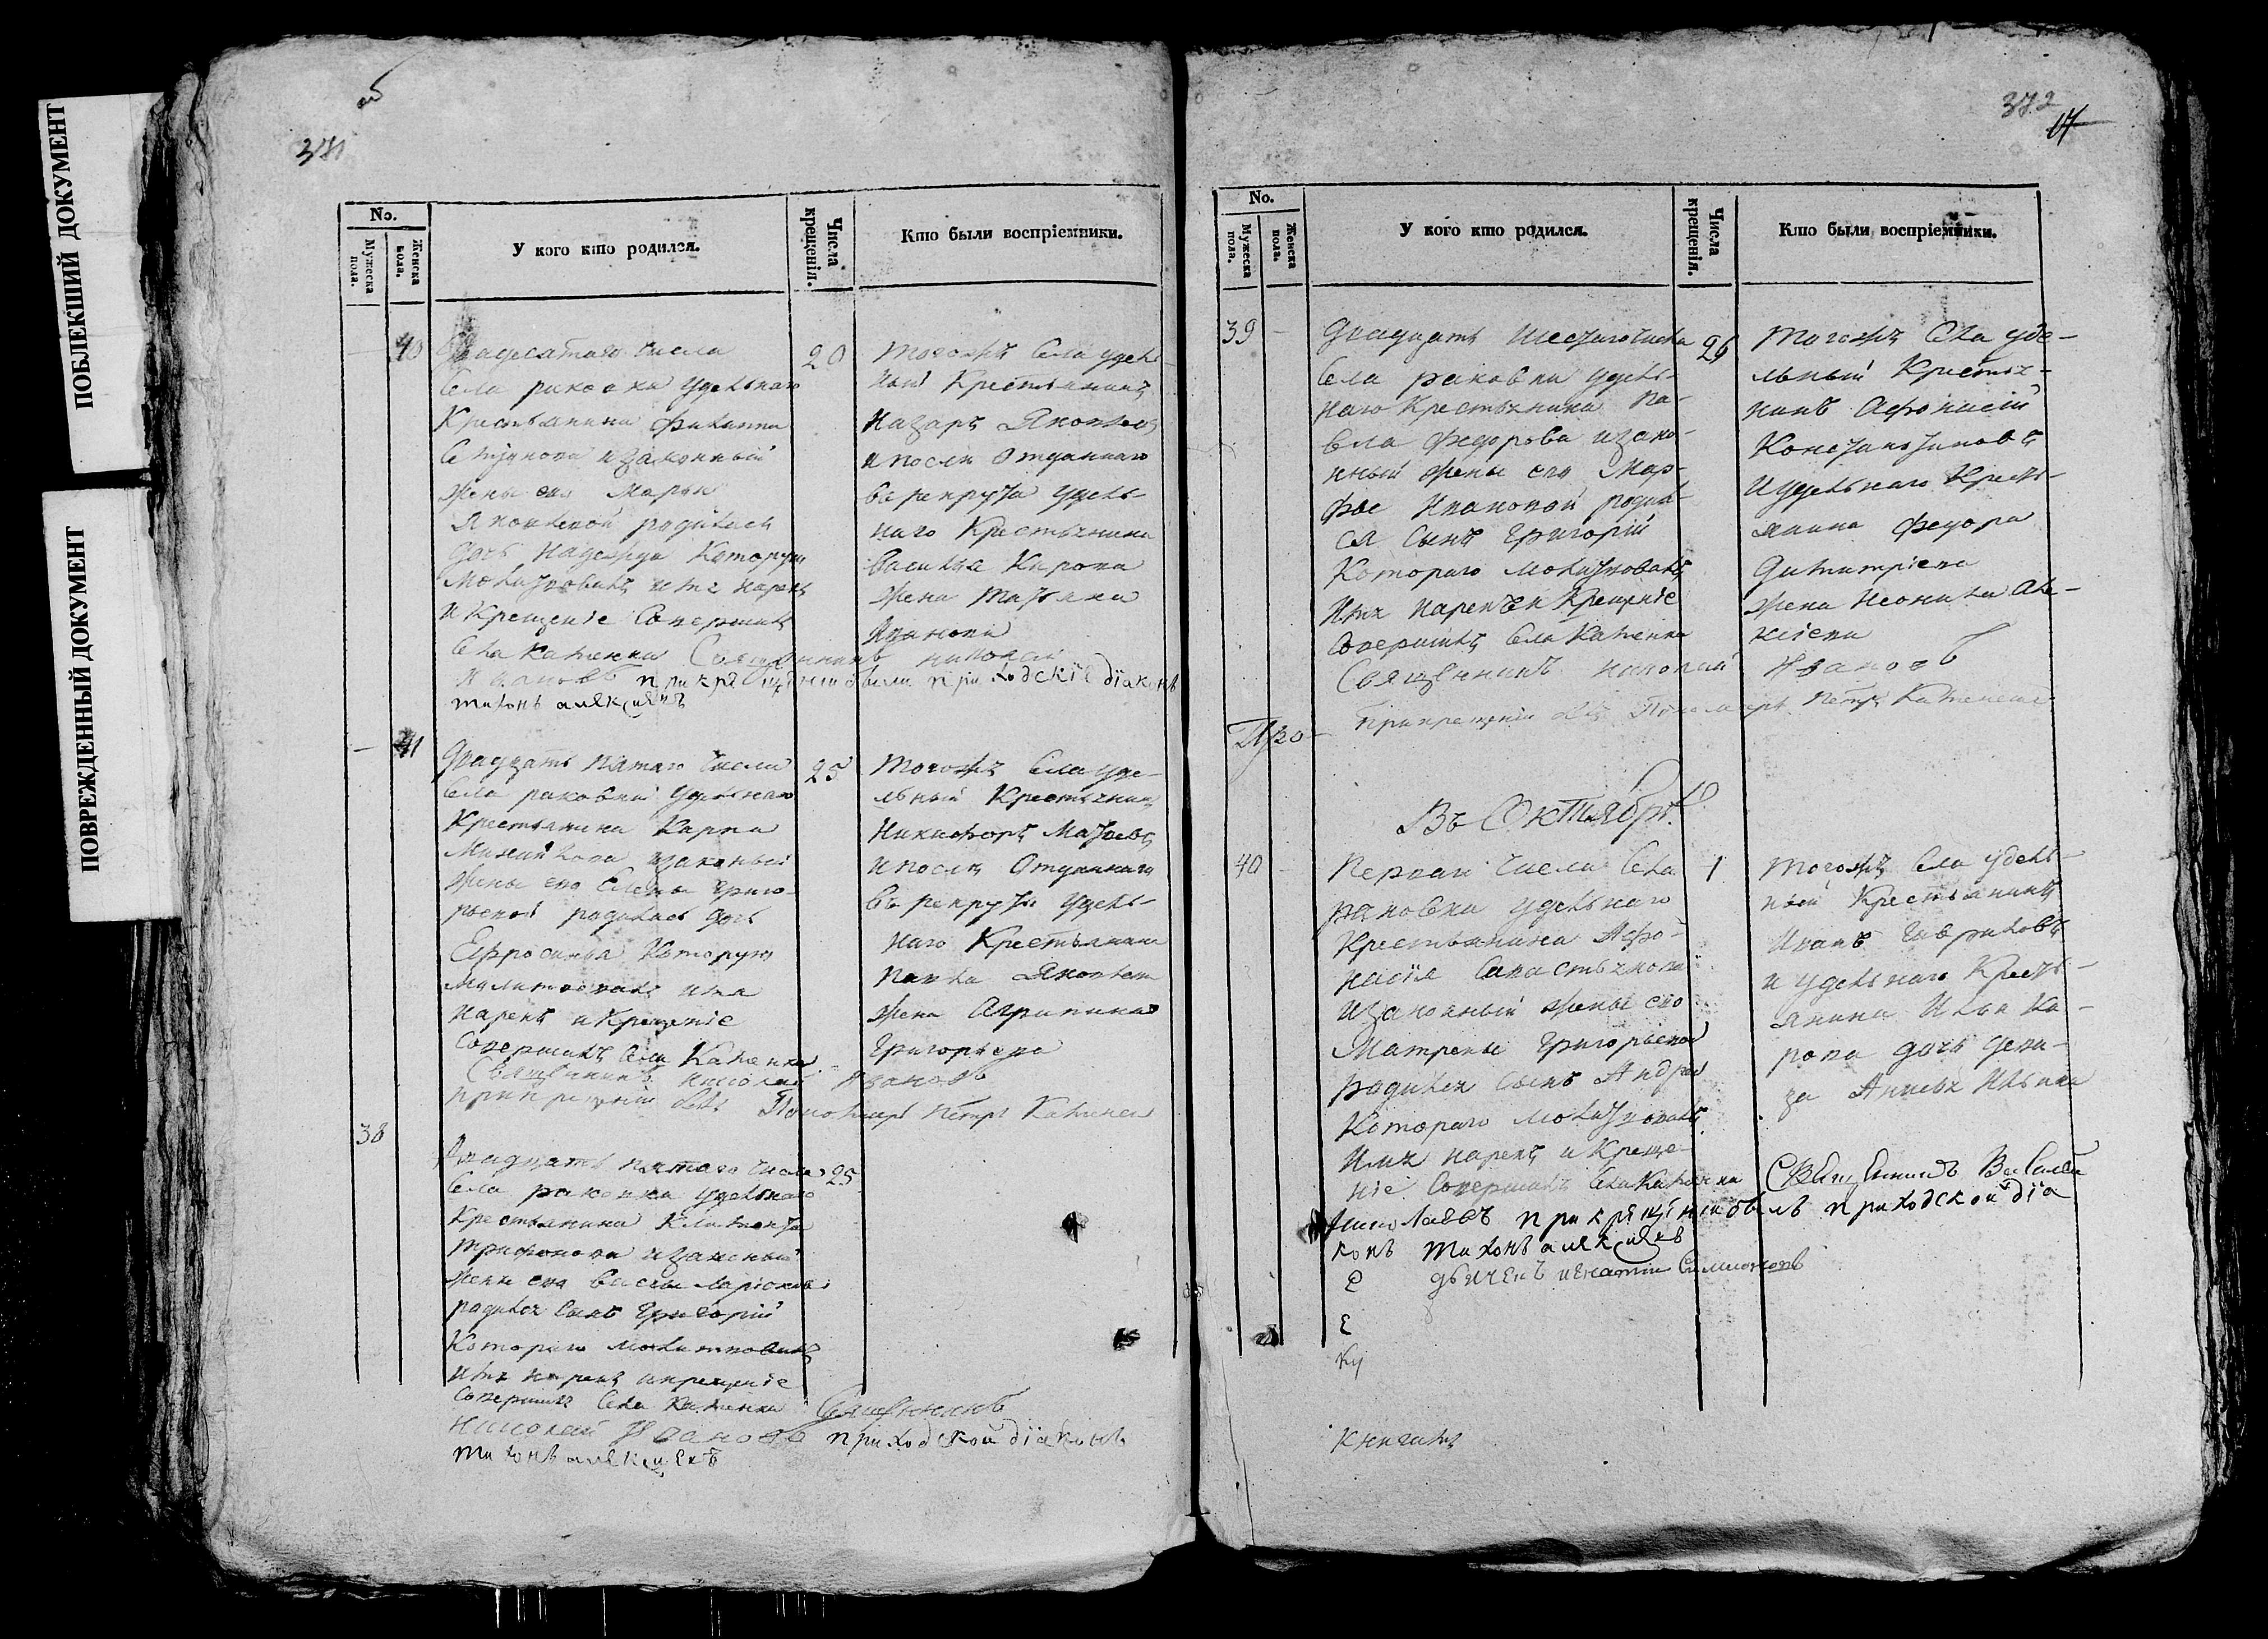 ПОБЛЕКШИЙ ДОКУМЕНТ
ПОВРЕЖДЕННЫЙ ДОКУМЕНТ
371
No.
Мужеска пола.
Женска пола.
У кого кто родился.
Числа крещенія.
Кто были воспріемники.
40
Двадесятаго числа
20
Села раковки удельнаго
Крестьянина филиппа
жены его Марьи
Яковлевой родилась
дочь Надежда Которую
Молитвовалъ имя нарекъ
и Крещеніе Совершилъ
Села Каменки Священникъ николай
Ивановъ при крещеніи были приходскіе діаконъ
тихонъ алексіевъ
тогожъ Села удель
ный Крестьянинъ
Назаръ Яковлевъ
и послѣ Отданнаго
в рекруты удель-
наго Крестьянина
Василья Карпова
жена татьяна
Иванова
41
Двадцать пятаго числа
25
Села раковки удельнаго
Крестьянина Карпа
Михайлова изаконный
жены его Елены Григо-
рьевой родилась дочь
Ефросинья Которую
Молитвовалъ имя
нарекъ и Крещеніе
Совершилъ Села Каменки
Священникъ николай Ивановъ
При крещеніи былъ Пономарь Петръ Каменск
тогожъ Села уде-
льный Крестьянинъ
Никифоръ Матвеевъ
и послѣ Отданнаго
въ рекруты удель-
наго Крестьянина
Павла Яковлева
жена Агрипина
Григорьева
38
Двадцать пятаго числа
25
Села раковки удельнаго
Крестьянина Климента
Трифонова изаконный
жены его Васы Ларіоновой
родился Сынъ Григорій
Котораго молитвовалъ
имя нарекъ и крещеніе
Совершилъ Села Каменки Священникъ
николай Ивановъ приходской діаконъ
тихонъ алексіевъ
372
17
No.
Мужеска пола.
Женска пола.
У кого кто родился.
Числа крещенія.
Кто были воспріемники.
39
Двадцать шестаго числа
26
Села раковки удель-
наго Крестьянина Па-
вла Федорова изако-
нный жены его Мар-
фы Ивановой родил-
ся Сынъ Григорій
Котораго Молитвовалъ
Имя нарекъ и Крещеніе
Совершилъ Села Каменки
Священникъ николай Ивановъ
При крещеніи былъ Пономарь Петръ Каменск
тогожъ Села уде-
льный Крестья-
нинъ Афонасій
Константиновъ
и удельнаго Кресть-
янина Федора
Димитріева
жена Неонила Але-
ксіева
Въ Октябрѣ.
40
Перваго числа Села
1
раковки удельнаго
Крестьянина Афо-
насія Савастьянова
изаконный жены его
Матрены Григорьевой
родился Сынъ Андрей
Котораго молитвовалъ
Имя нарекъ и Креще-
ніе Совершилъ Села Каменки Священникъ Василій
Николаевъ при крещеніи былъ приходской діа
конъ тихонъ алексіевъ
дьячекъ игнатій Симионовъ
тогожъ Села удель-
ный Крестьянинъ
Иванъ Гавриловъ
и удельнаго Кресть-
янина Ильи Ка-
рпова дочь деви-
ца Анисья Ильина
Е
Е
Ку